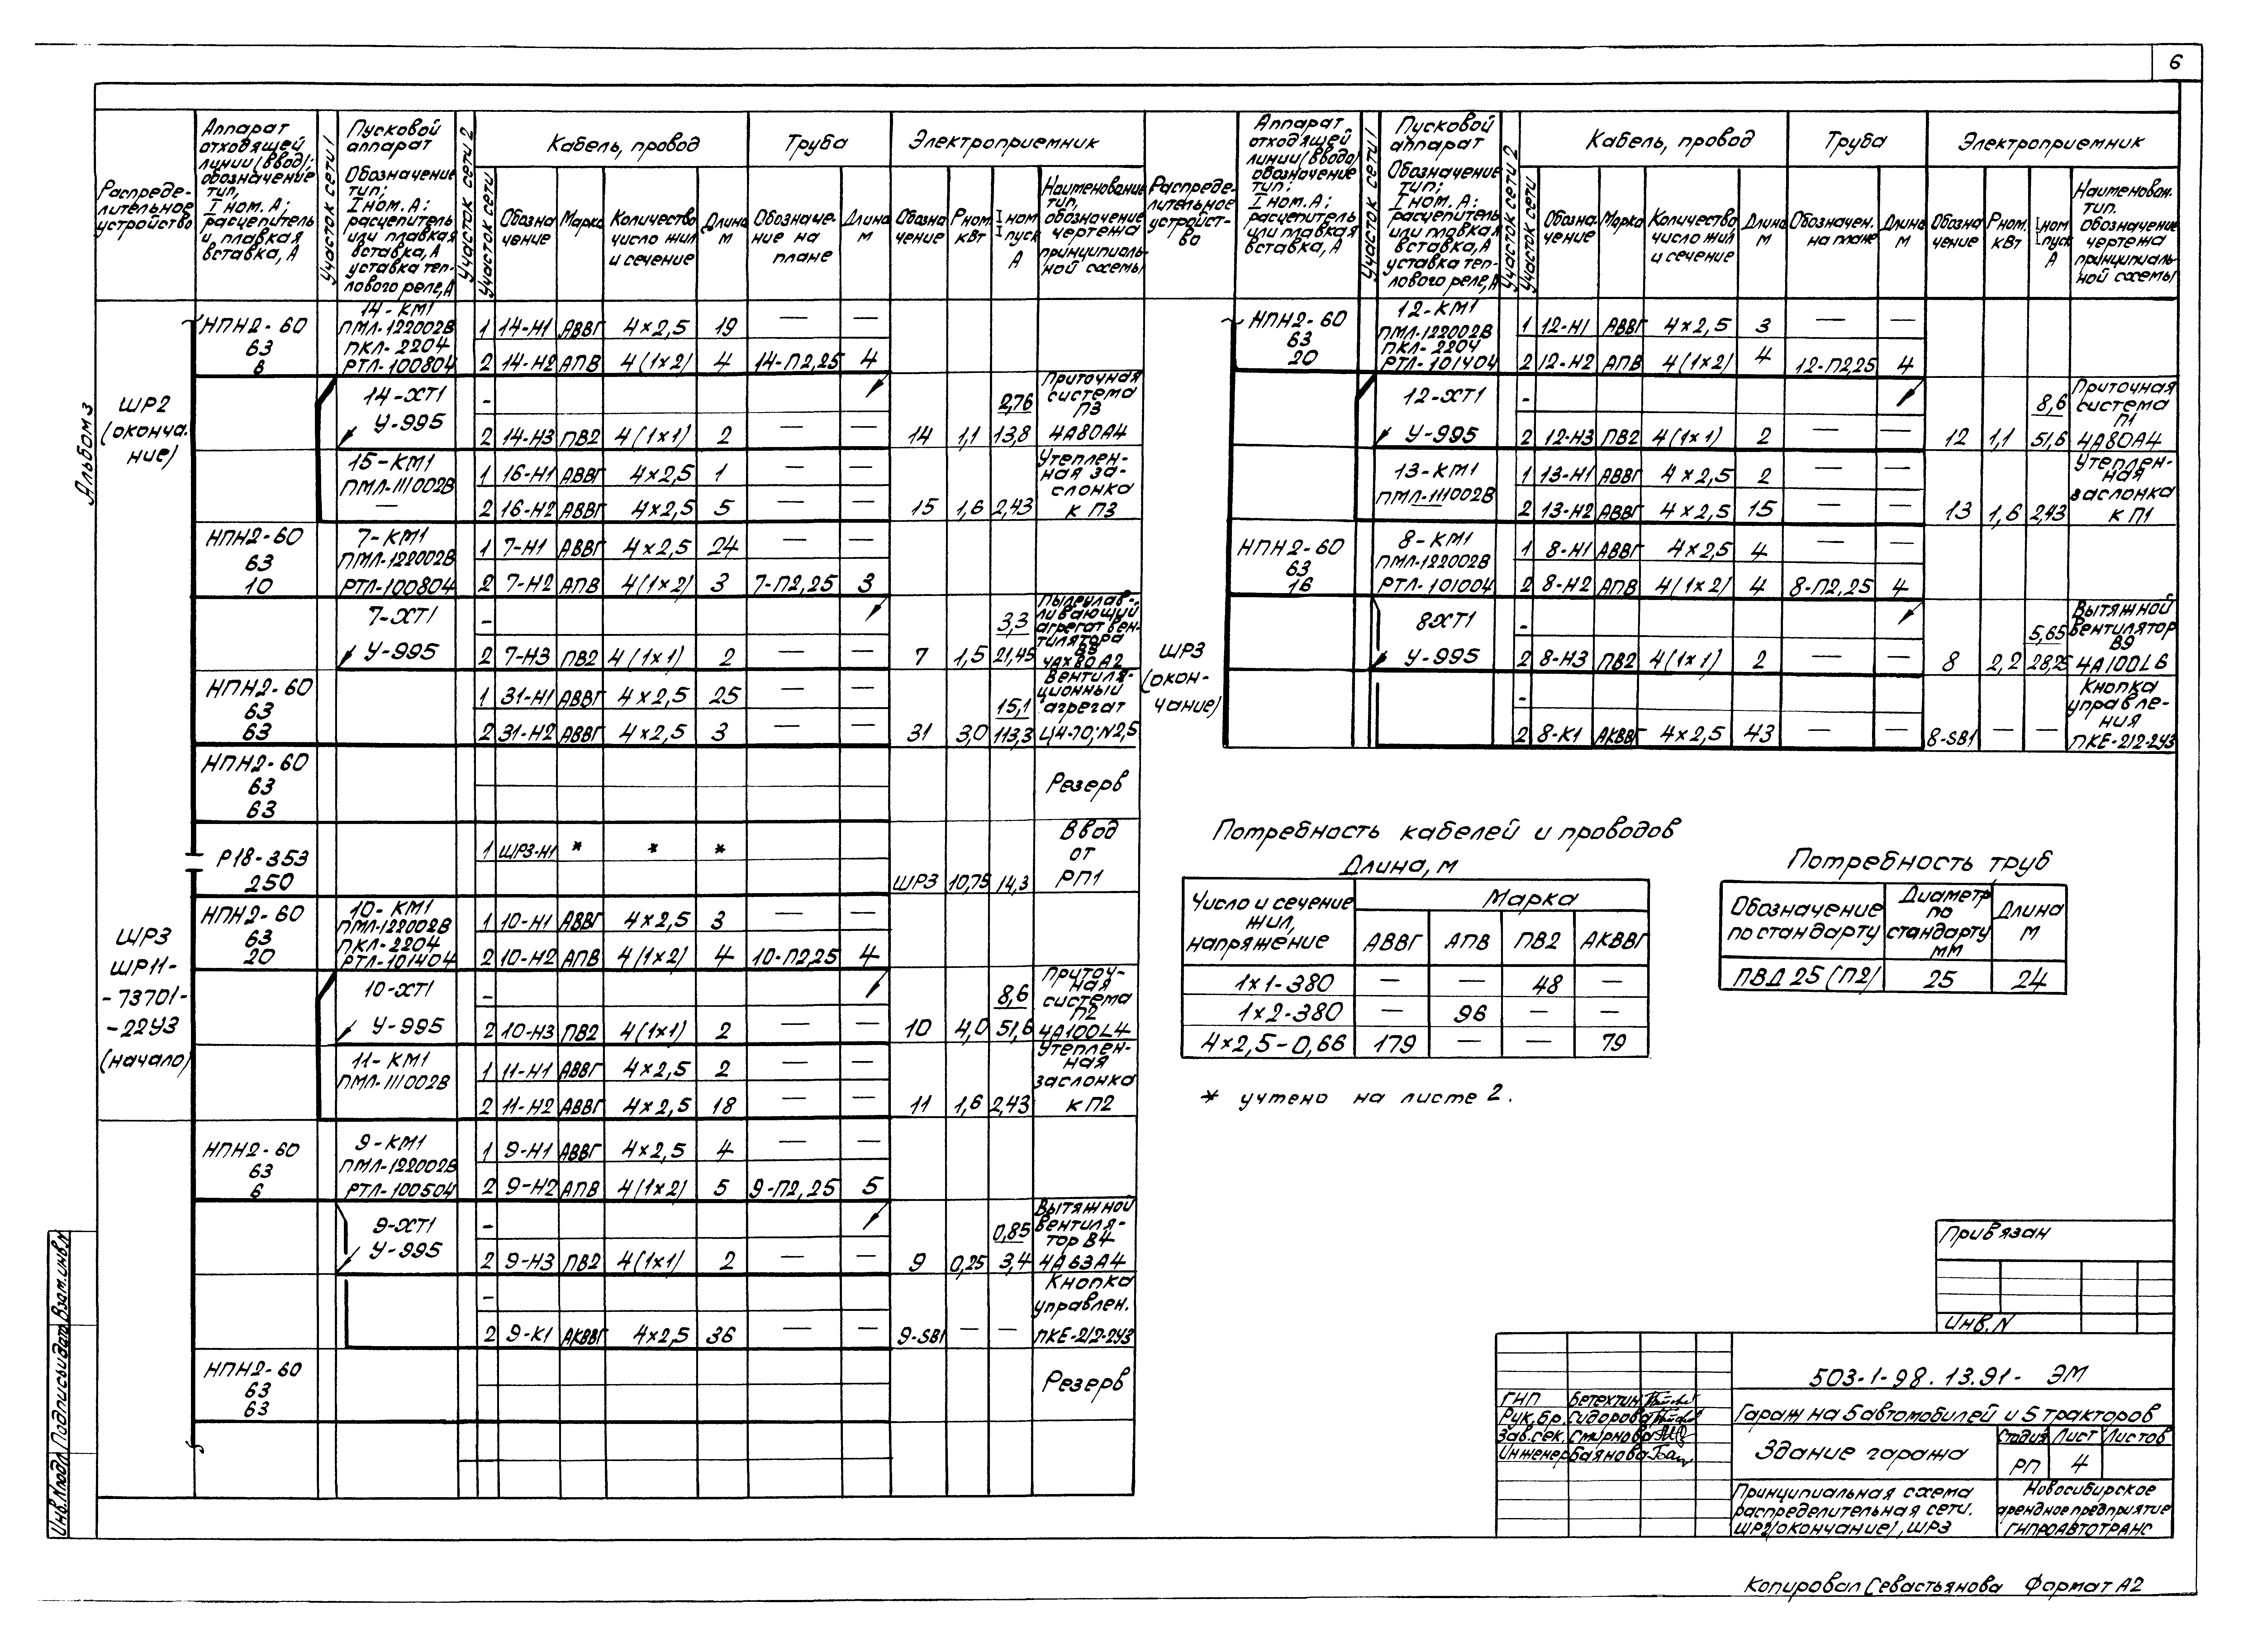 6
Альбом 3
Распреде-
лительное
устройство
Аппарат
отходящей
линии (ввод);
обозначение
тип,
I ном. А;
расцепитель
и плавкая
вставка, А
Участок сети 1
Пусковой
аппарат
Обозначение
тип;
I ном. А;
расцепитель
или плавкая
вставка, А
уставка теп-
лового реле, А
Участок сети 2
Участок сети
Кабель, провод
Обозна
чение
Марка
Количество
число жил
и сечение
Длина
м
Труба
Обозначе-
ние на
плане
Длина
м
Электроприемник
Обозна
чение
Рном.
кВт
I ном
I пуск
А
Наименование
тип,
обозначение
чертежа
принципиаль-
ной схемы
ШР2
(оконча-
ние)
НПН2-60
63
6
14-КМ1
ПМЛ-122002В
ПКЛ-2204
РТЛ-100804
1 14-Н1 АВВГ 4×2,5 19 — —
2 14-Н2 АПВ 4(1×2) 4 14-П2,25 4
14-ХТ1
У-995
-
2 14-Н3 ПВ2 4(1×1) 2 — — 14 1,1 2,76 13,8
Приточная
система
П3
4А80А4
15-КМ1
ПМЛ-111002В
—
1 16-Н1 АВВГ 4×2,5 1 — —
2 16-Н2 АВВГ 4×2,5 5 — — 15 1,6 2,43
Утеплен-
ная за-
слонка
к П3
НПН2-60
63
10
7-КМ1
ПМЛ-122002В
РТЛ-100804
1 7-Н1 АВВГ 4×2,5 24 — —
2 7-Н2 АПВ 4(1×2) 3 7-П2,25 3
7-ХТ1
У-995
-
2 7-Н3 ПВ2 4(1×1) 2 — — 7 1,5 3,3 21,45
Пылеулав-
ливающий
агрегат вен-
тилятора
4АХ80А2
НПН2-60
63
63
1 31-Н1 АВВГ 4×2,5 25 — —
2 31-Н2 АВВГ 4×2,5 3 — — 31 3,0 15,1 113,3
Вентиля-
ционный
агрегат
Ц4-70; N2,5
НПН2-60
63
63
Резерв
ШР3
ШР11-
-73701-
-22У3
(начало)
Р18-353
250
1 ШР3-Н1 * * *
ШР3 10,75 14,3
Ввод
от
РП1
НПН2-60
63
20
10-КМ1
ПМЛ-122002В
ПКЛ-2204
РТЛ-101404
1 10-Н1 АВВГ 4×2,5 3 — —
2 10-Н2 АПВ 4(1×2) 4 10-П2,25 4
10-ХТ1
У-995
-
2 10-Н3 ПВ2 4(1×1) 2 — — 10 4,0 8,6 51,6
Приточ-
ная
система
П2
4А100L4
11-КМ1
ПМЛ-111002В
1 11-Н1 АВВГ 4×2,5 2 — —
2 11-Н2 АВВГ 4×2,5 18 — — 11 1,6 2,43
Утеплен-
ная
заслонка
к П2
НПН2-60
63
6
9-КМ1
ПМЛ-122002В
РТЛ-100504
1 9-Н1 АВВГ 4×2,5 4 — —
2 9-Н2 АПВ 4(1×2) 5 9-П2,25 5
9-ХТ1
У-995
-
2 9-Н3 ПВ2 4(1×1) 2 — — 9 0,25 0,85 3,4
Вытяжной
вентиля-
тор В4
4А63А4
-
2 9-К1 АКВВГ 4×2,5 36 — — 9-SB1 — —
Кнопка
управлен.
ПКЕ-212-2У3
НПН2-60
63
63
Резерв
Распреде-
лительное
устройст-
во
Аппарат
отходящей
линии (ввода)
обозначение
тип;
I ном. А;
расцепитель
или плавкая
вставка, А
Участок сети 1
Пусковой
аппарат
Обозначение
тип;
I ном. А;
расцепитель
или плавкая
вставка, А
уставка теп-
лового реле, А
Участок сети 2
Участок сети
Кабель, провод
Обозна-
чение
Марка
Количество
число жил
и сечение
Длина
м
Труба
Обозначен.
на плане
Длина
м
Электроприемник
Обозна
чение
Рном.
кВт
I ном
I пуск
А
Наименован.
тип.
обозначение
чертежа
принципиаль-
ной схемы
ШР3
(окон-
чание)
НПН2-60
63
20
12-КМ1
ПМЛ-122002В
ПКЛ-2204
РТЛ-101404
1 12-Н1 АВВГ 4×2,5 3 — —
2 12-Н2 АПВ 4(1×2) 4 12-П2,25 4
12-ХТ1
У-995
-
2 12-Н3 ПВ2 4(1×1) 2 — — 12 1,1 8,6 51,6
Приточная
система
П1
4А80А4
13-КМ1
ПМЛ-111002В
1 13-Н1 АВВГ 4×2,5 2 — —
2 13-Н2 АВВГ 4×2,5 15 — — 13 1,6 2,43
Утеплен-
ная
заслонка
к П1
НПН2-60
63
16
8-КМ1
ПМЛ-122002В
РТЛ-101004
1 8-Н1 АВВГ 4×2,5 4 — —
2 8-Н2 АПВ 4(1×2) 4 8-П2,25 4
8ХТ1
У-995
-
2 8-Н3 ПВ2 4(1×1) 2 — — 8 2,2 5,65 28,25
Вытяжной
вентилятор
В9
4А100L6
-
2 8-К1 АКВВГ 4×2,5 43 — — 8-SB1 — —
Кнопка
управле-
ния
ПКЕ-212-2У3
Потребность кабелей и проводов
Длина, м
Число и сечение
жил,
напряжение
Марка
АВВГ АПВ ПВ2 АКВВГ
1×1-380 — — 48 —
1×2-380 — 96 — —
4×2,5-0,66 179 — — 79
* учтено на листе 2.
Потребность труб
Обозначение
по стандарту
Диаметр
по
стандарту
мм
Длина
м
ПВД 25 (П2) 25 24
Привязан
Инв. N
503-1-98.13.91- ЭМ
ГНП Бетехтин
Рук.бр. Сидорова
Зав.сек. Смирнова
Инженер Баянова
Гараж на 5 автомобилей и 5 тракторов
Здание гаража
Стадия Лист Листов
РП 4
Принципиальная схема
распределительная сети.
ШР2(окончание), ШР3
Новосибирское
арендное предприятие
ГИПРОАВТОТРАНС
Инв.N подл. Подпись и дата Взам.инв.N
Копировал Севастьянова Формат А2